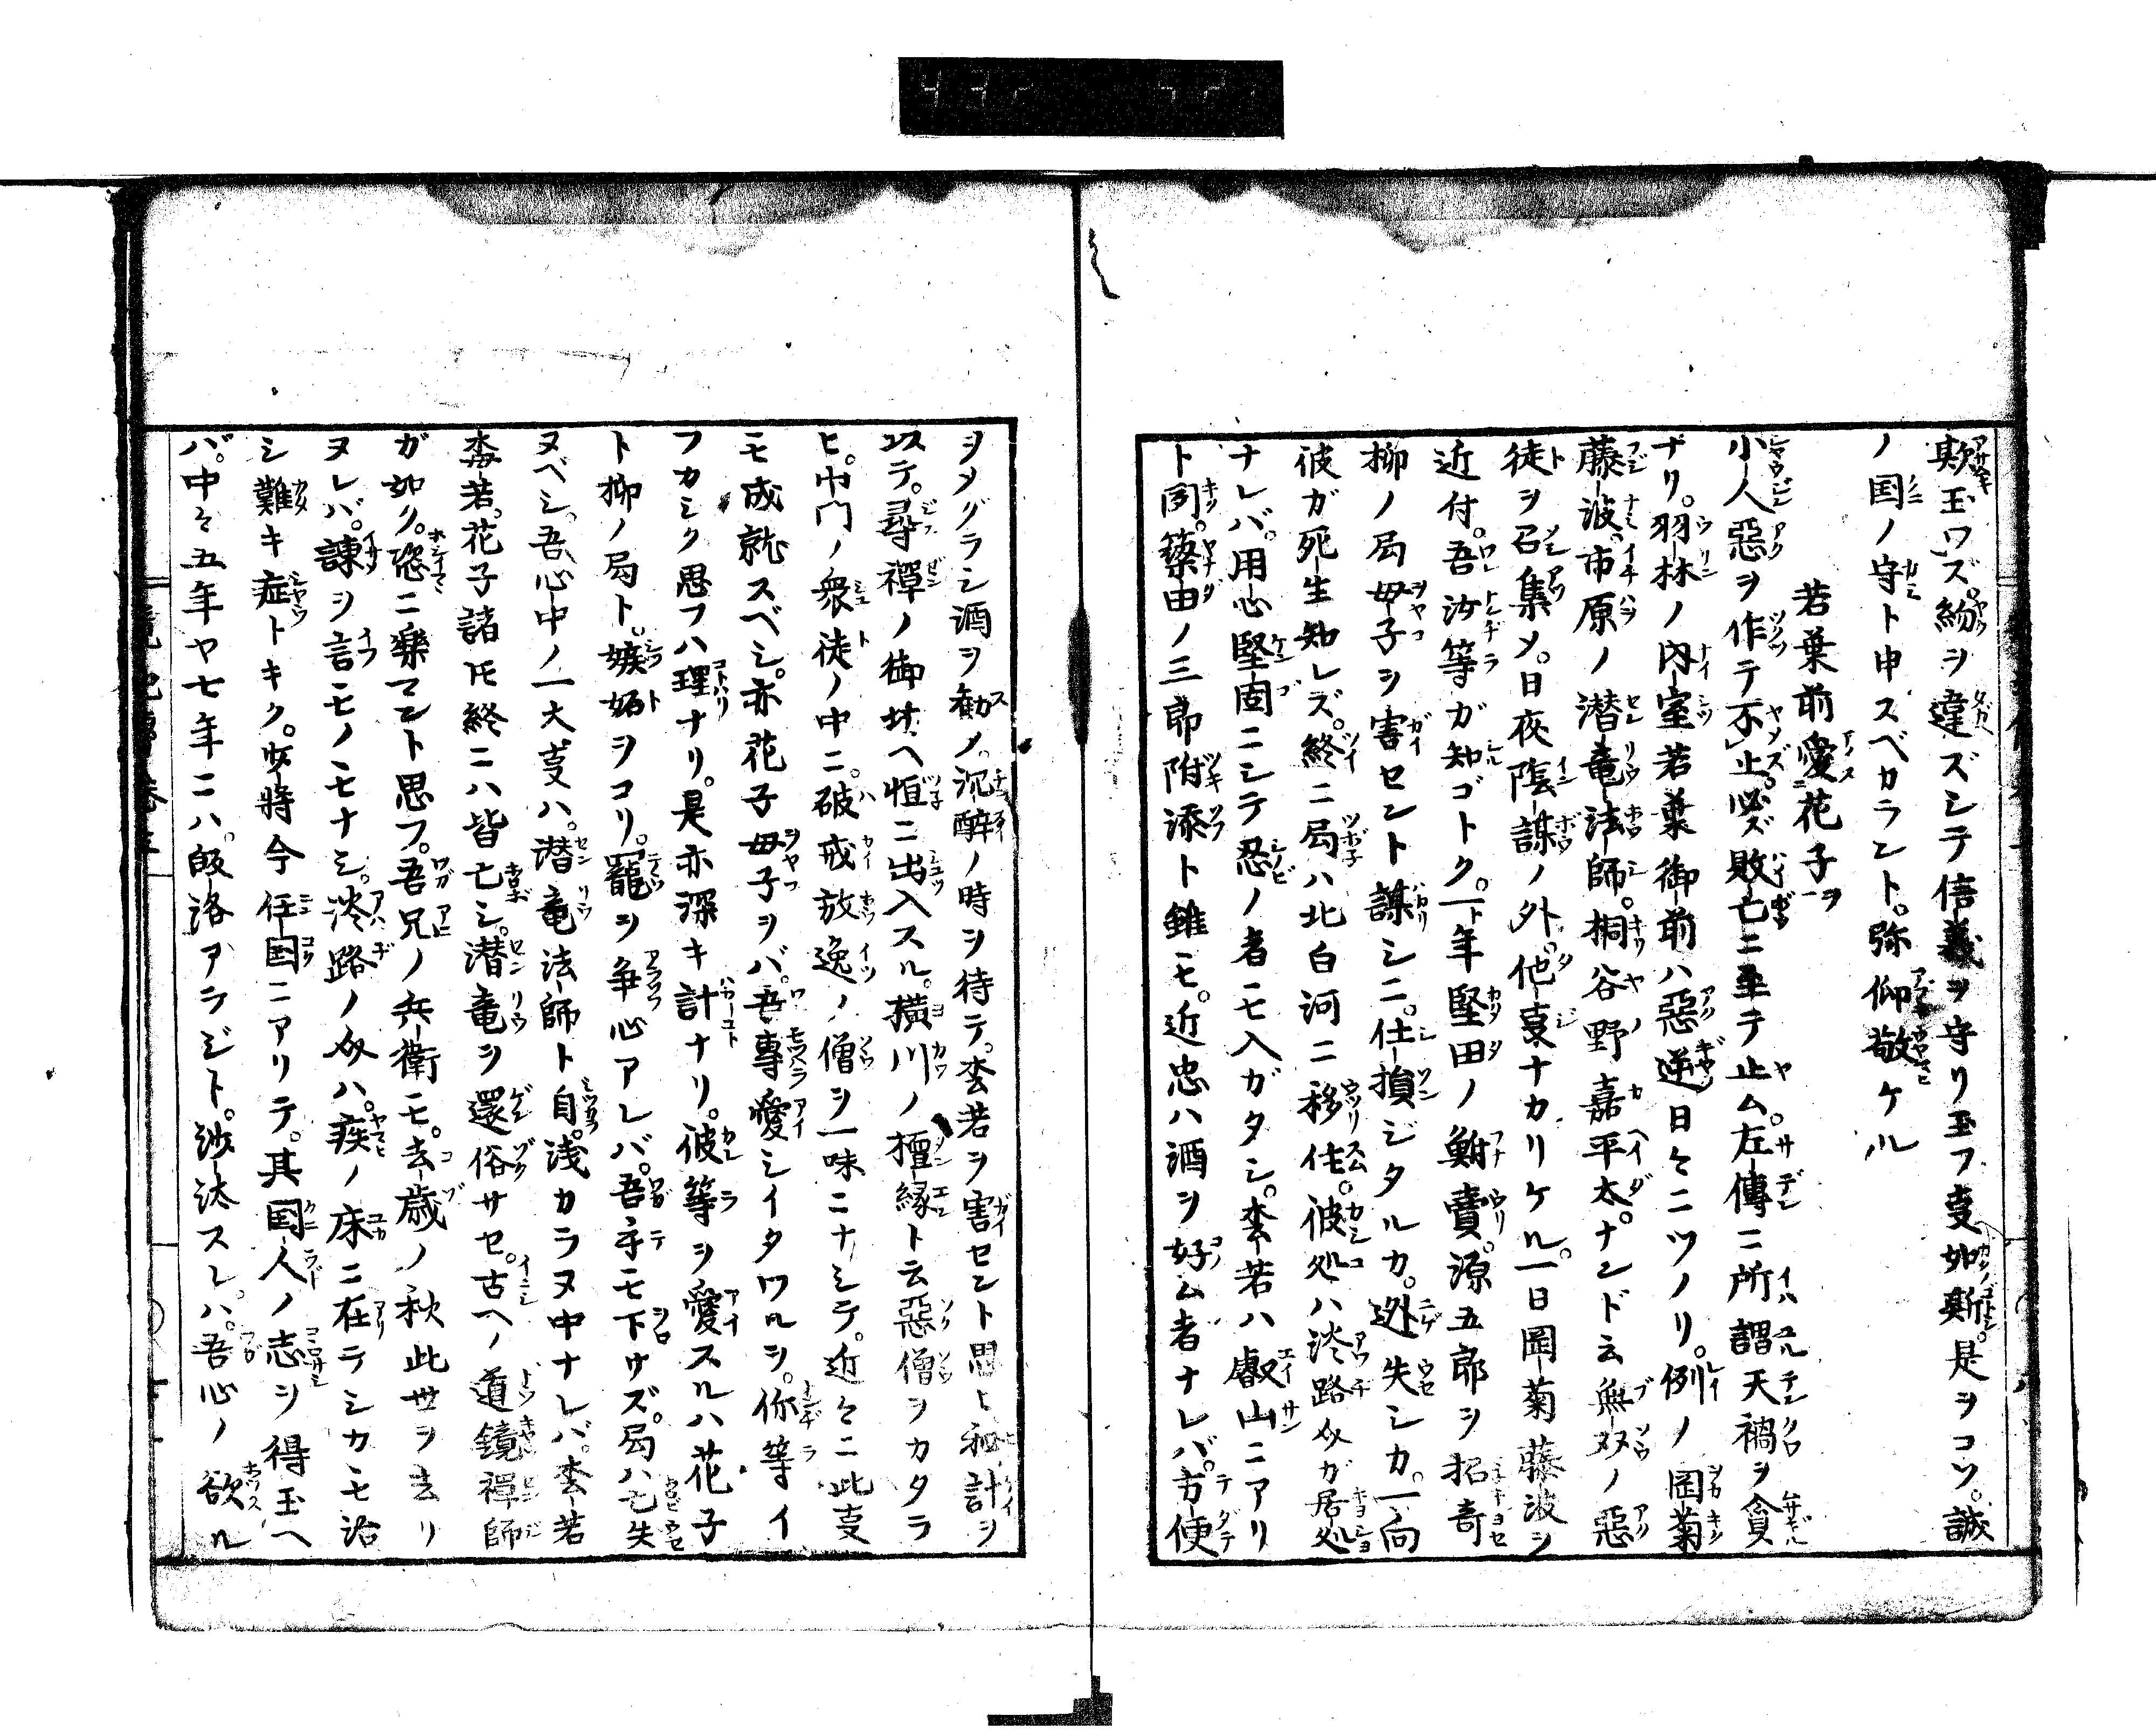 欺玉ワズ。約ヲ違ズシテ信義ヲ守リ玉フ㕝如斯。是ヲコソ。誠
ノ国ノ守ト申スベカラント。弥仰敬ケル
若葉前愛花子ヲ
小人惡ヲ作テ不止。必ズ敗亡ニ至テ止ム。左傳ニ所謂天禍ヲ貪
ナリ。羽林ノ内室若葉御前ハ惡逆日々ニツノリ。例ノ岡菊
藤波。市原ノ潜竜法師。桐谷野嘉平太。ナンド云無双ノ惡
徒ヲ召集メ。日夜陰謀ノ外。他㕝ナカリケル。一日岡菊藤波ヲ
近付。吾汝等ガ知ゴトク。一年堅田ノ鮒賣。源五郎ヲ招寄
柳ノ局母子ヲ害セント謀シニ。仕損ジタルカ。迯失シカ。一向
彼ガ死生知レズ。終ニ局ハ北白河ニ移住。彼処ハ淡路介ガ居処
ナレバ。用心堅固ニシテ忍ノ者モ入ガタシ。杢若ハ叡山ニアリ
ト聞。簗田ノ三郎附添ト雖モ。近忠ハ酒ヲ好ム者ナレバ。方便
ヲメグラシ酒ヲ勧メ。沉醉ノ時ヲ待テ。杢若ヲ害セント思ヒ秘計ヲ
以テ。尋禪ノ御坊ヘ恒ニ出入スル。横川ノ檀縁ト云惡僧ヲカタラ
ヒ。中門ノ衆徒ノ中ニ。破戒放逸ノ僧ヲ一味ニナシテ。近々ニ此㕝
モ成就スベシ。亦花子母子ヲバ。吾專愛シイタワルヲ。你等イ
フカシク思フハ理ナリ。是亦深キ計ナリ。彼等ヲ愛スルハ花子
ト柳ノ局ト。嫉妬ヲコリ。寵ヲ争心アレバ。吾手モ下サズ。局ハ亡失
ヌベシ。吾心中ノ一大㕝ハ。潜竜法師ト自。浅カラヌ中ナレバ。杢若
毒若。花子諸トモ終ニハ皆亡シ。潜竜ヲ還俗サセ。古ヘノ道鏡禪師
ガ如ク。恣ニ樂マント思フ。吾兄ノ兵衛モ。去歳ノ秋此世ヲ去リ
ヌレバ。諫ヲ言モノモナシ。淡路ノ介ハ。疾ノ床ニ在テシカモ治
シ難キ症トキク。少將今任国ニアリテ。其国人ノ志ヲ得玉ヘ
バ。中々五年ヤ七年ニハ。皈洛アラジト。沙汰スレハ。吾心ノ欲ル